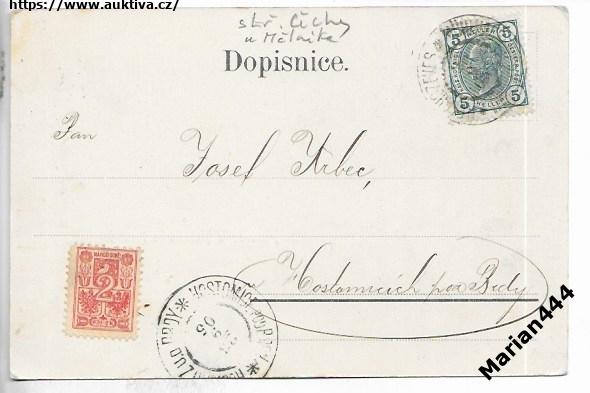 https://www.auktiva.cz/
stř. Čechy
u Mělníka
Dopisnice.
5 5
5 HELLER 5
Pan
Josef Urbec,
NÁRODNÍ
2 2
v Hostomicích pod Brdy
HOSTOMICE POD BRDY
Marian444